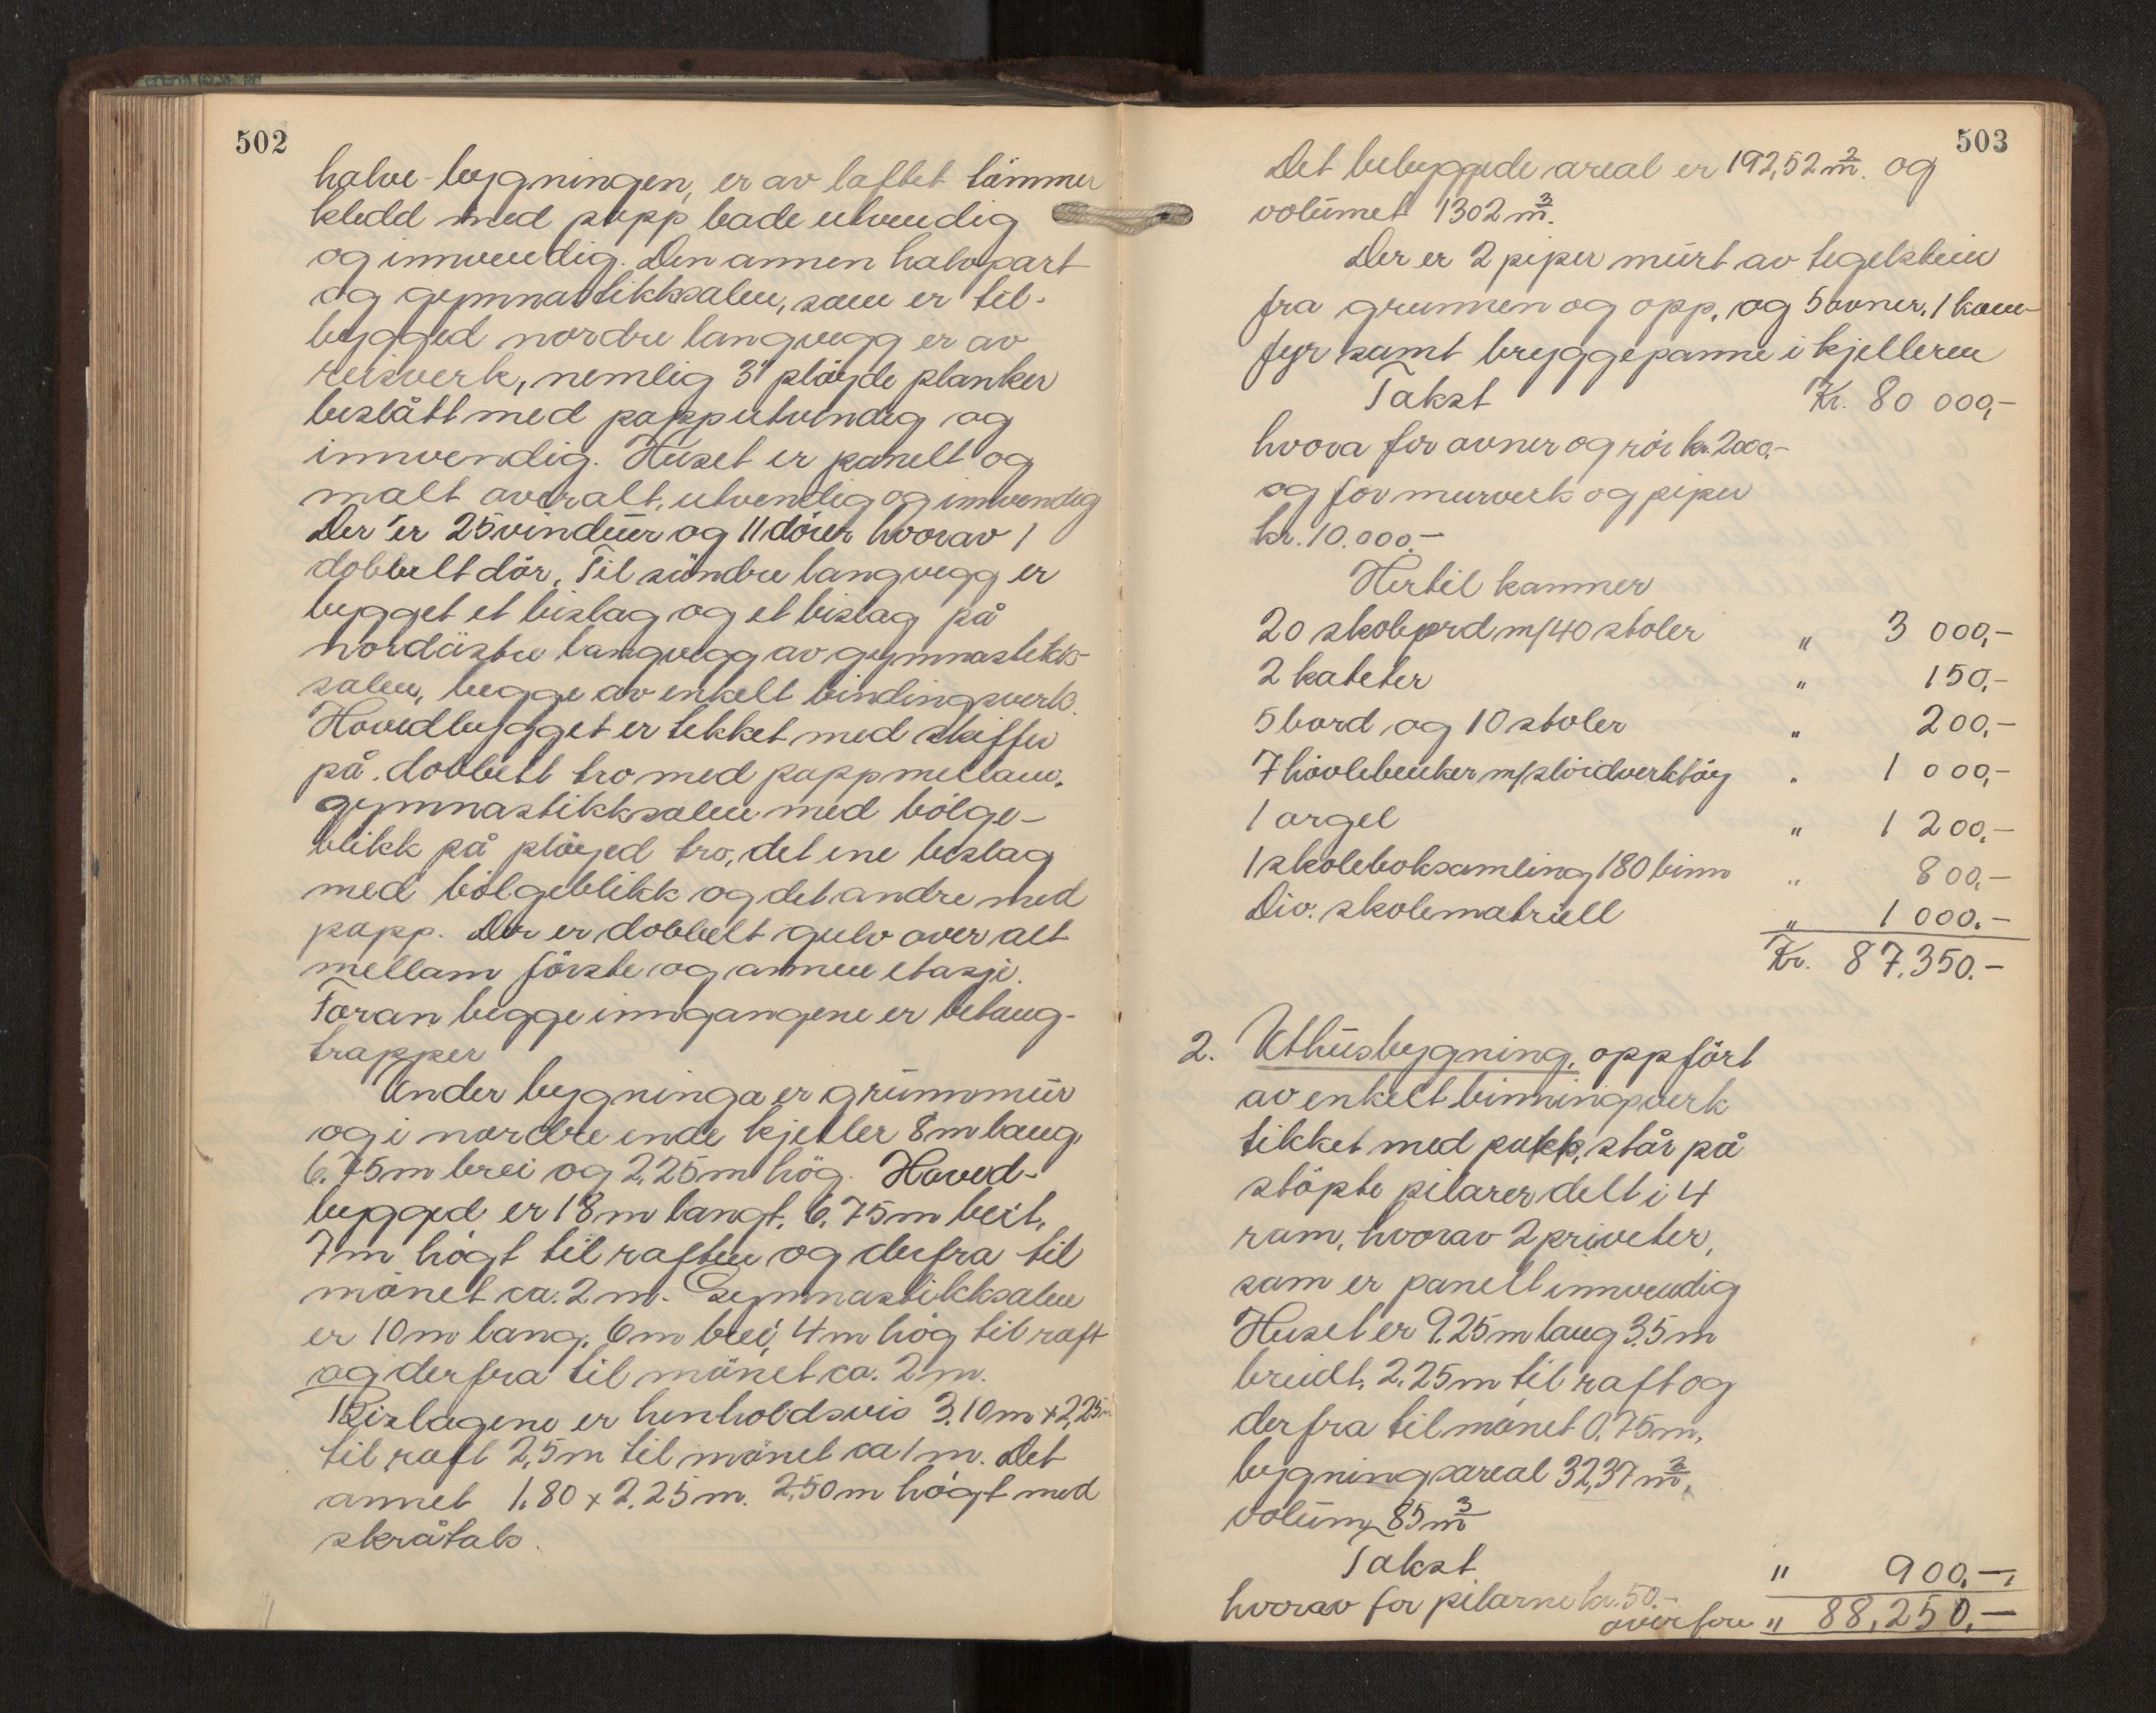 502
halve-bygningen, er av laftet tømmer
kledd med papp både utvendig
og innvendig. Den annen halvpart
og gymnastikksalen, som er til-
bygged nordre langvegg er av
reisverk, nemlig 3" pløyde planker
beslått med papp utvendig og
innvendig. Huset er panelt og
malt overalt, utvendig og innvendig
Der er 25 vinduer og 11 dører hvorav 1
dobbelt dör. Til søndre langvegg er
bygget et bislag og et bislag på
nordöstre langvegg av gymnastikk-
salen, begge av enkelt bindingsverk.
Hovedbygget er tekket med skiffer
på dobbelt tro med papp mellom.
gymnastikksalen med bölge-
blikk på plöyed tro, det ene bislag
med bölgeblikk og det andre med
papp. Der er dobbelt gulv over alt
mellom förste og annen etasje.
Foran begge inngangene er betong-
trapper
Under bygninga er grunnmur
og i nordre ende kjeller 8 m lang,
6.75 m brei og 2,25 m hög. Hoved-
bygged er 18 m langt, 6.75 m beit,
7 m högt til raften og derfra til
mönet ca. 2 m. Gymnastikksalen
er 10 m lang, 6 m brei, 4 m hög til raft
og derfra til mönet ca. 2 m.
Bislagene er henholdsvis 3,10 m x 2,25 m
til raft 2,5 m til mönet ca 1 m. Det
annet 1.80 x 2.25 m. 2,50 m högt med
skråtak.
503
Det bebyggede areal er 192,52 m². og
volumet 1302 m³.
Der er 2 piper murt av tegelstein
fra grunnen og opp, og 5 ovner, 1 kom-
fyr samt bryggepanne i kjelleren
Takst Kr. 80 000,-
hvorav for ovner og rör kr. 2000.-
og for murverk og piper
kr. 10.000.-
Hertil kommer
20 skolepord m/40 stoler " 3 000,-
2 kateter " 150,-
5 bord og 10 stoler " 200,-
7 hövlebenker m/slöidverktöy " 1 000,-
1 orgel " 1 200,-
1 skoleboksamling 180 binn " 800,-
Div. skolematriell " 1 000.-
Kr. 87.350.-
2. Uthusbygning, oppfört
av enkelt binningsverk
tikket med papp, står på
stöpte pilarer delt i 4
rum, hvorav 2 priveter,
som er panelt innvendig
Huset er 9.25 m lang 3.5 m
breidt, 2.25 m til raft og
derfra til mönet 0.75 m,
bygningsareal 32,37 m²,
volum 85 m³
Takst " 900.-
hvorav for pilarne kr. 50.-
overföre " 88,250,-